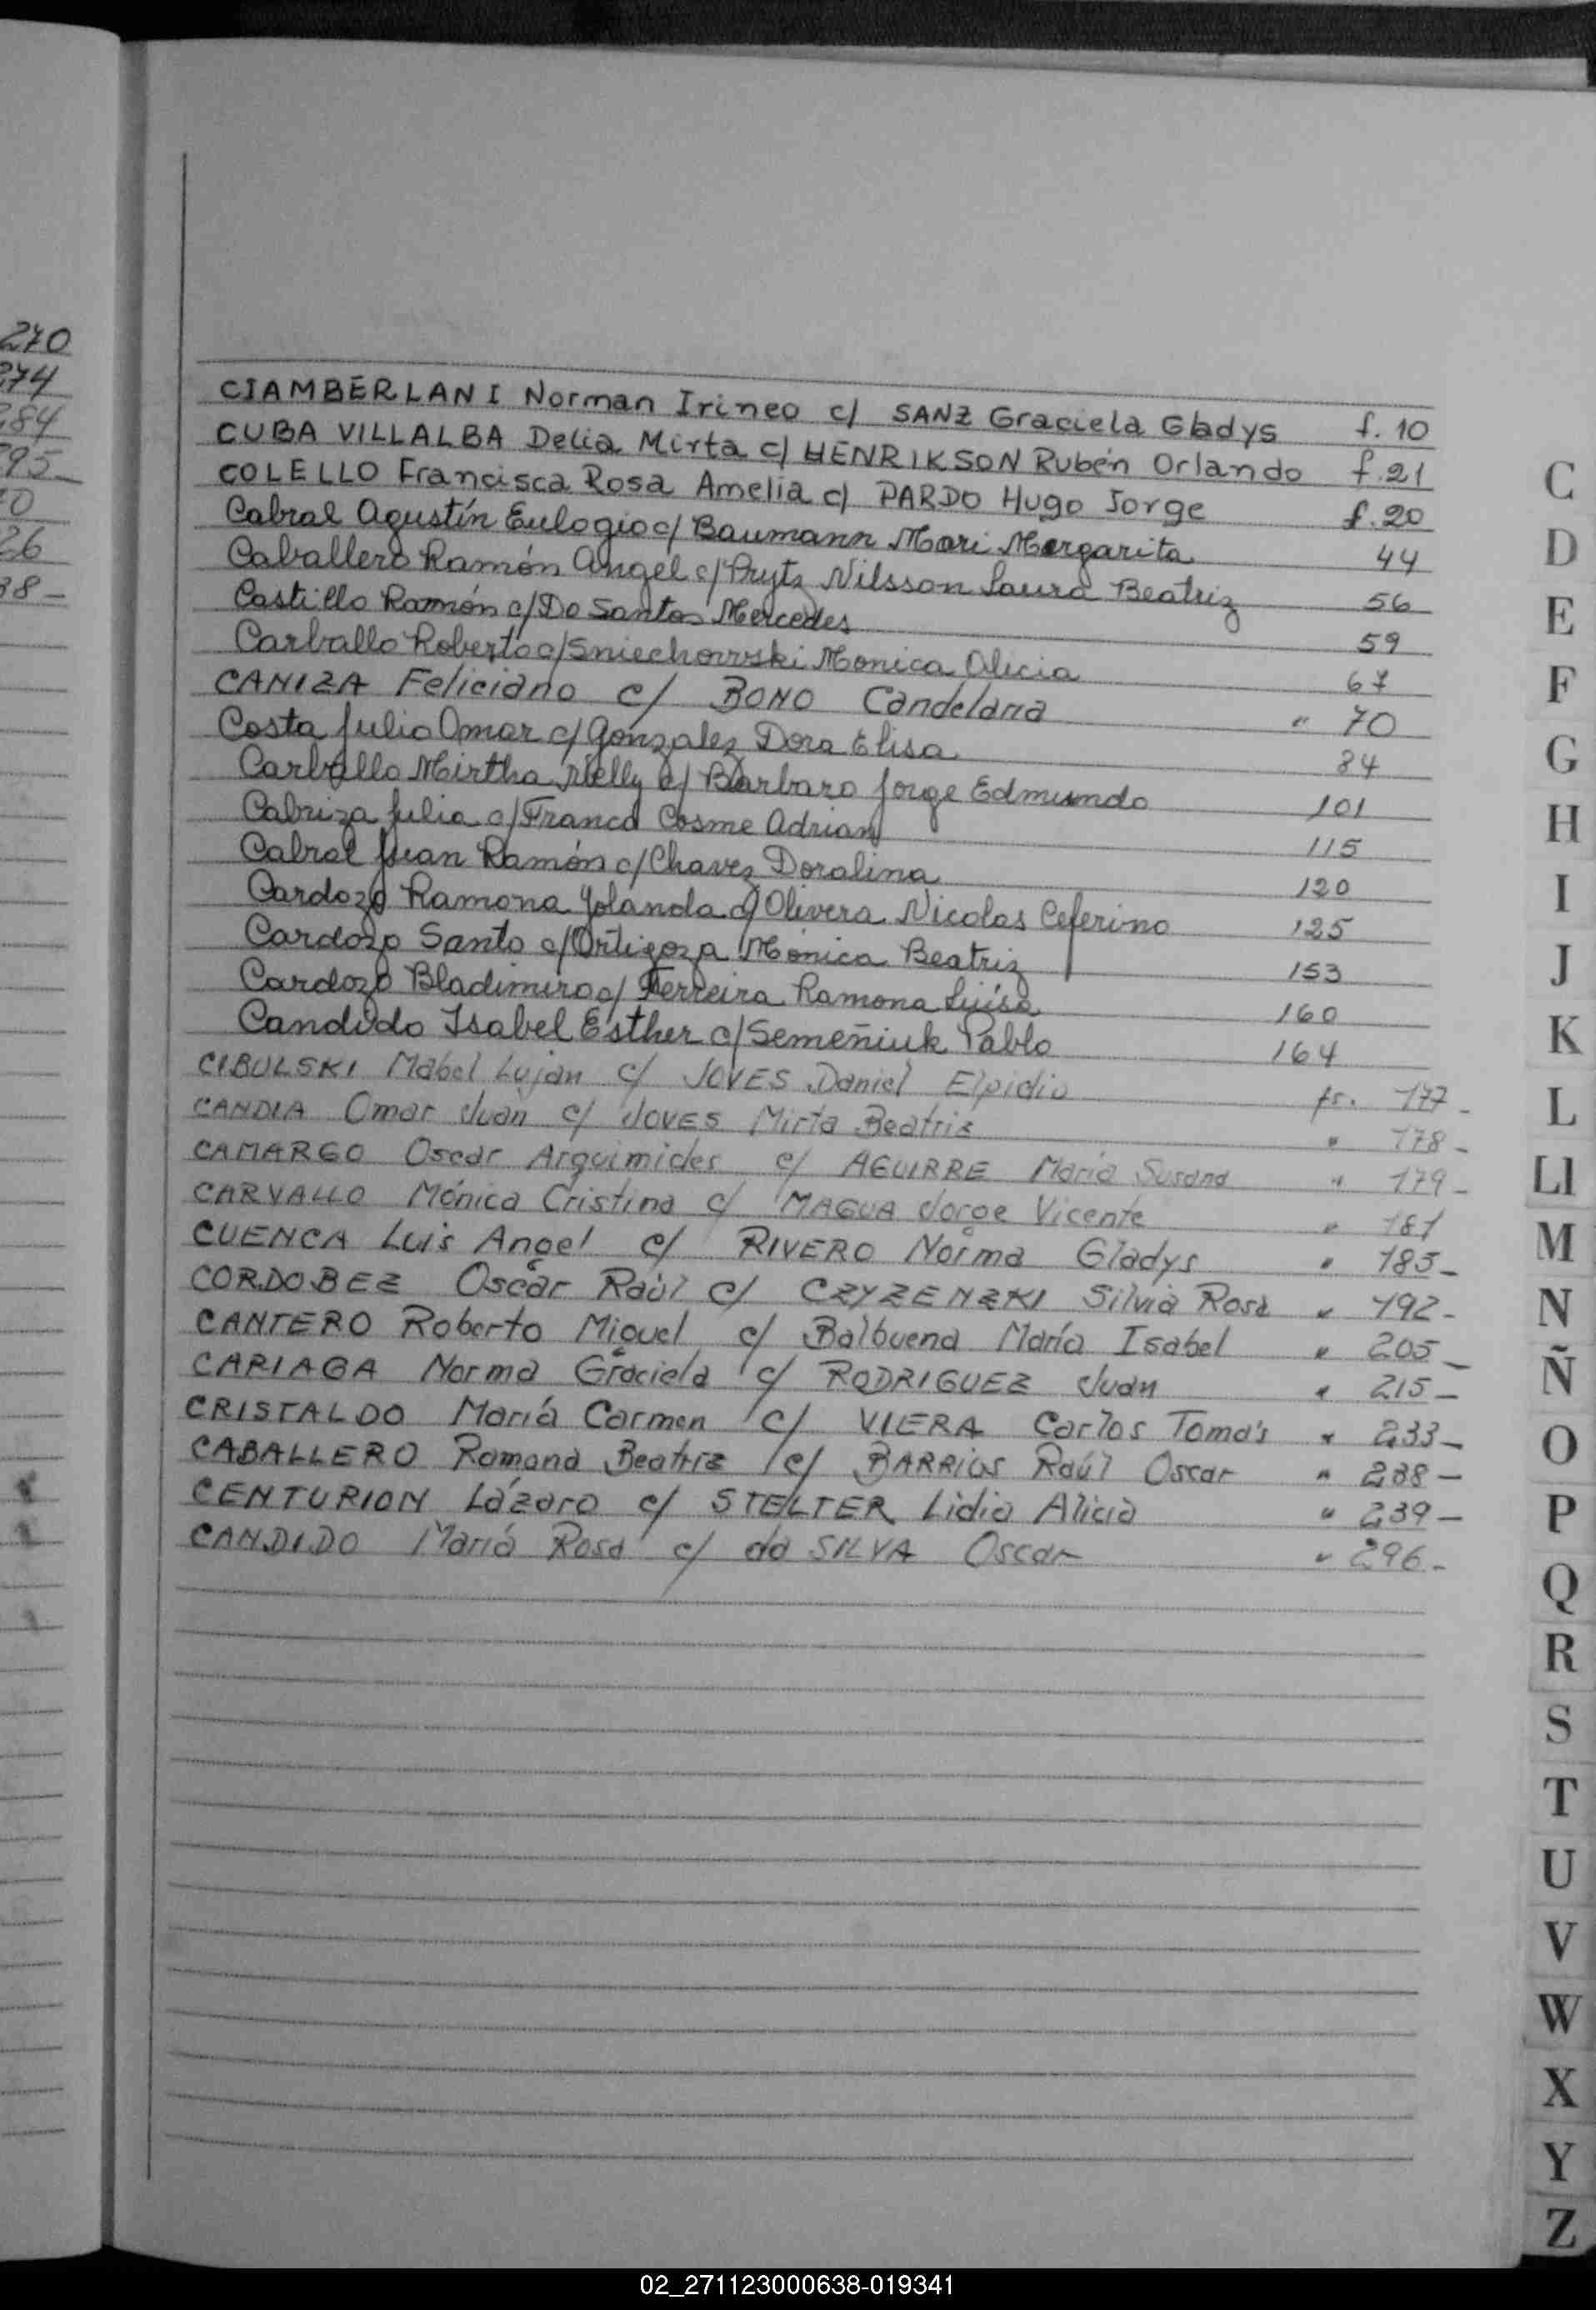 270
274
284
295
0
26
38-
CIAMBERLANI Norman Irineo c/ SANZ Graciela Gladys f. 10
CUBA VILLALBA Delia Mirta c/ HENRIKSON Rubén Orlando f. 21
COLELLO Francisca Rosa Amelia c/ PARDO Hugo Jorge f. 20
Cabral Agustín Eulogio c/ Baumann Mari Margarita 44
Caballero Ramón Angel c/ Prytz Nilsson Laura Beatriz 56
Castillo Ramón c/ Do Santos Mercedes 59
Carballo Roberto c/ Sniechowski Monica Alicia 67
CANIZA Feliciano c/ BONO Candelaria " 70
Costa Julio Omar c/ Gonzalez Dora Elisa 84
Carballo Mirtha Nelly c/ Barbaro Jorge Edmundo 101
Cabriza Julia c/ Franco Cosme Adrian 115
Cabral Juan Ramón c/ Chavez Doralina 120
Cardozo Ramona Yolanda c/ Olivera Nicolas Ceferino 125
Cardozo Santo c/ Ortigoza Mónica Beatriz 153
Cardozo Bladimiro c/ Ferreira Ramona Luisa 160
Candido Isabel Esther c/ Semeñiuk Pablo 164
CIBULSKI Mabel Luján c/ JOVES Daniel Elpidio fs. 177-
CANDIA Omar Juan c/ JOVES Mirta Beatriz " 178-
CAMARGO Oscar Arquimides c/ AGUIRRE María Susana " 179-
CARVALLO Mónica Cristina c/ MAGUA Jorge Vicente " 181
CUENCA Luis Angel c/ RIVERO Norma Gladys " 185-
CORDOBEZ Oscar Raúl c/ CZYZENZKI Silvia Rosa " 192-
CANTERO Roberto Miguel c/ Balbuena María Isabel " 205-
CARIAGA Norma Graciela c/ RODRIGUEZ Juan " 215-
CRISTALDO María Carmen c/ VIERA Carlos Tomás " 233-
CABALLERO Ramona Beatriz c/ BARRIOS Raúl Oscar " 238-
CENTURION Lázaro c/ STELTER Lidia Alicia " 239-
CANDIDO María Rosa c/ da SILVA Oscar " 296-
C
D
E
F
G
H
I
J
K
L
Ll
M
N
Ñ
O
P
Q
R
S
T
U
V
W
X
Y
Z
02_271123000638-019341